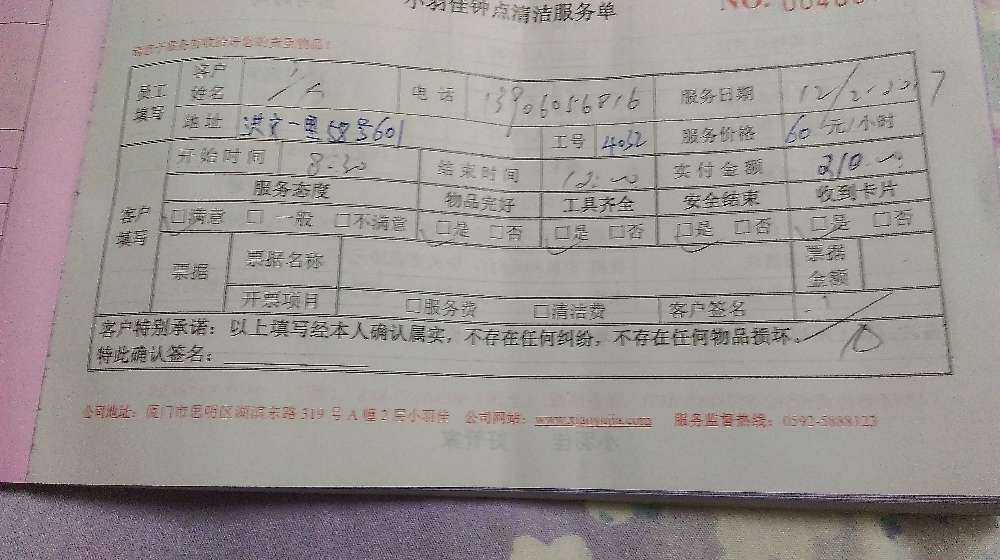 小羽佳钟点清洁服务单 NO.
员工填写 客户姓名 电话 13906056816 服务日期 12/2
地址 洪文一里58号601 工号 4032 服务价格 60 元/小时
开始时间 8:30 结束时间 12:00 实付金额 210
客户填写 服务态度 物品完好 工具齐全 安全结束 收到卡片
□满意 □一般 □不满意 □是 □否 □是 □否 □是 □否 □是 □否
票据 票据名称 票据金额
开票项目 □服务费 □清洁费 客户签名
客户特别承诺：以上填写经本人确认属实，不存在任何纠纷，不存在任何物品损坏。
特此确认签名：
公司地址：厦门市思明区湖滨东路319号A幢2层小羽佳 公司网站：www.xiaoyujia.com 服务监督热线：0592-5888123